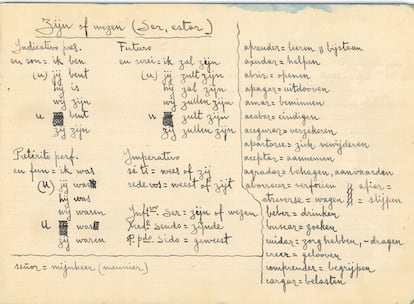 Zijn of wezen (Ser, estar)
Indicativo pres.
en sons = ik ben
(u) jij bent
hij is
wij zijn
u bent
zij zijn
Futuro
en serei = ik zal zijn
(u) jij zult zijn
hij zal zijn
wij zullen zijn
u zult zijn
zij zullen zijn
Pretérito perf.
en fun = ik was
(u) jij was
hij was
wij waren
u was
zij waren
Imperativo
sê ti = wees of zij
sede vos = weest of zijt
Infvo Ser = zijn of wezen
Gerdo Sendo = zijnde
P. pdo Sido = geweest
señor = mijnheer (meunier)
aprender = leeren || bijstaan
axudar = helpen
abrir = openen
apagar = uitdooven
amar = beminnen
acabar = eindigen
asegurar = verzekeren
apartarse = zich verwijderen
aceptar = aannemen
agradar = behagen, aanvaarden
aborrecer = verfoeien || afiar =
atreverse = wagen || = slijpen
beber = drinken
buscar = zoeken
cuidar = zorg hebben, -dragen
creer = gelooven
comprender = begrijpen
cargar = belasten